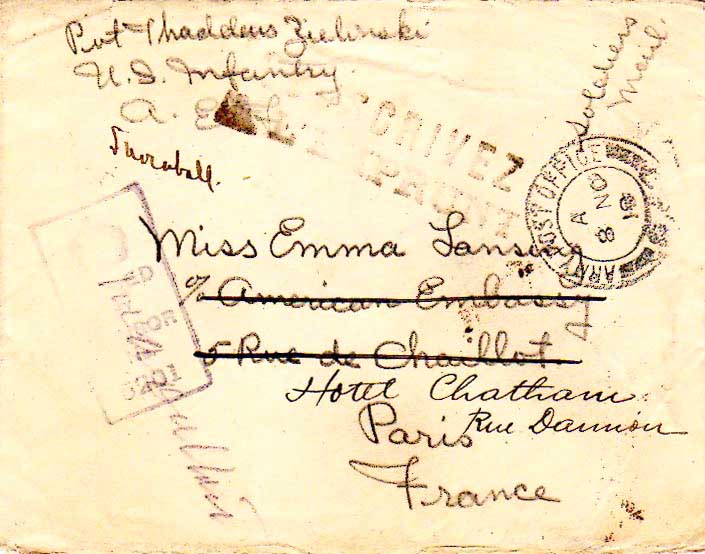 Pvt Thaddeus Zielinski
U.S. Infantry
A.
Soldiers
Mail
CRIVEZ
ARMY POST OFFICE
A
8 NO
18
Miss Emma Lansing
% American Embassy
5 Rue de Chaillot
Hotel Chatham
Rue Daunou
Paris
France
3201